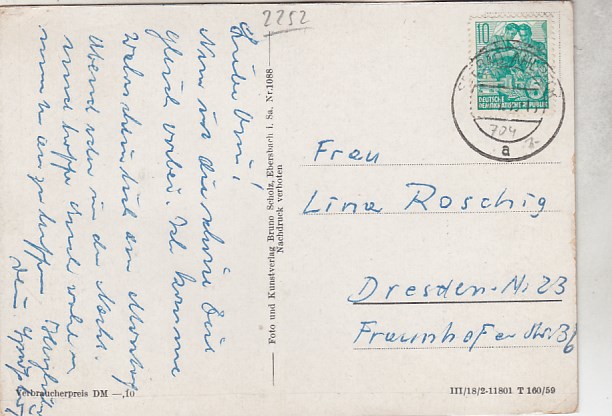 2252
Liebe Omi!
Nun ist die schöne Zeit
gleich vorbei. Ich komme
wahrscheinlich am Montag
Abend oder in der Nacht.
und hoffe doch bald
Herzlich
Dein
Verbraucherpreis DM —,10
Foto und Kunstverlag Bruno Scholz, Ebersbach i. Sa. Nr.1088
Nachdruck verboten
10
DEUTSCHE
DEMOKRATISCHE REPUBLIK
a
Frau
Lina Roschig
Dresden-N. 23
Fraunhofer Str.
III/18/2-11801 T 160/59